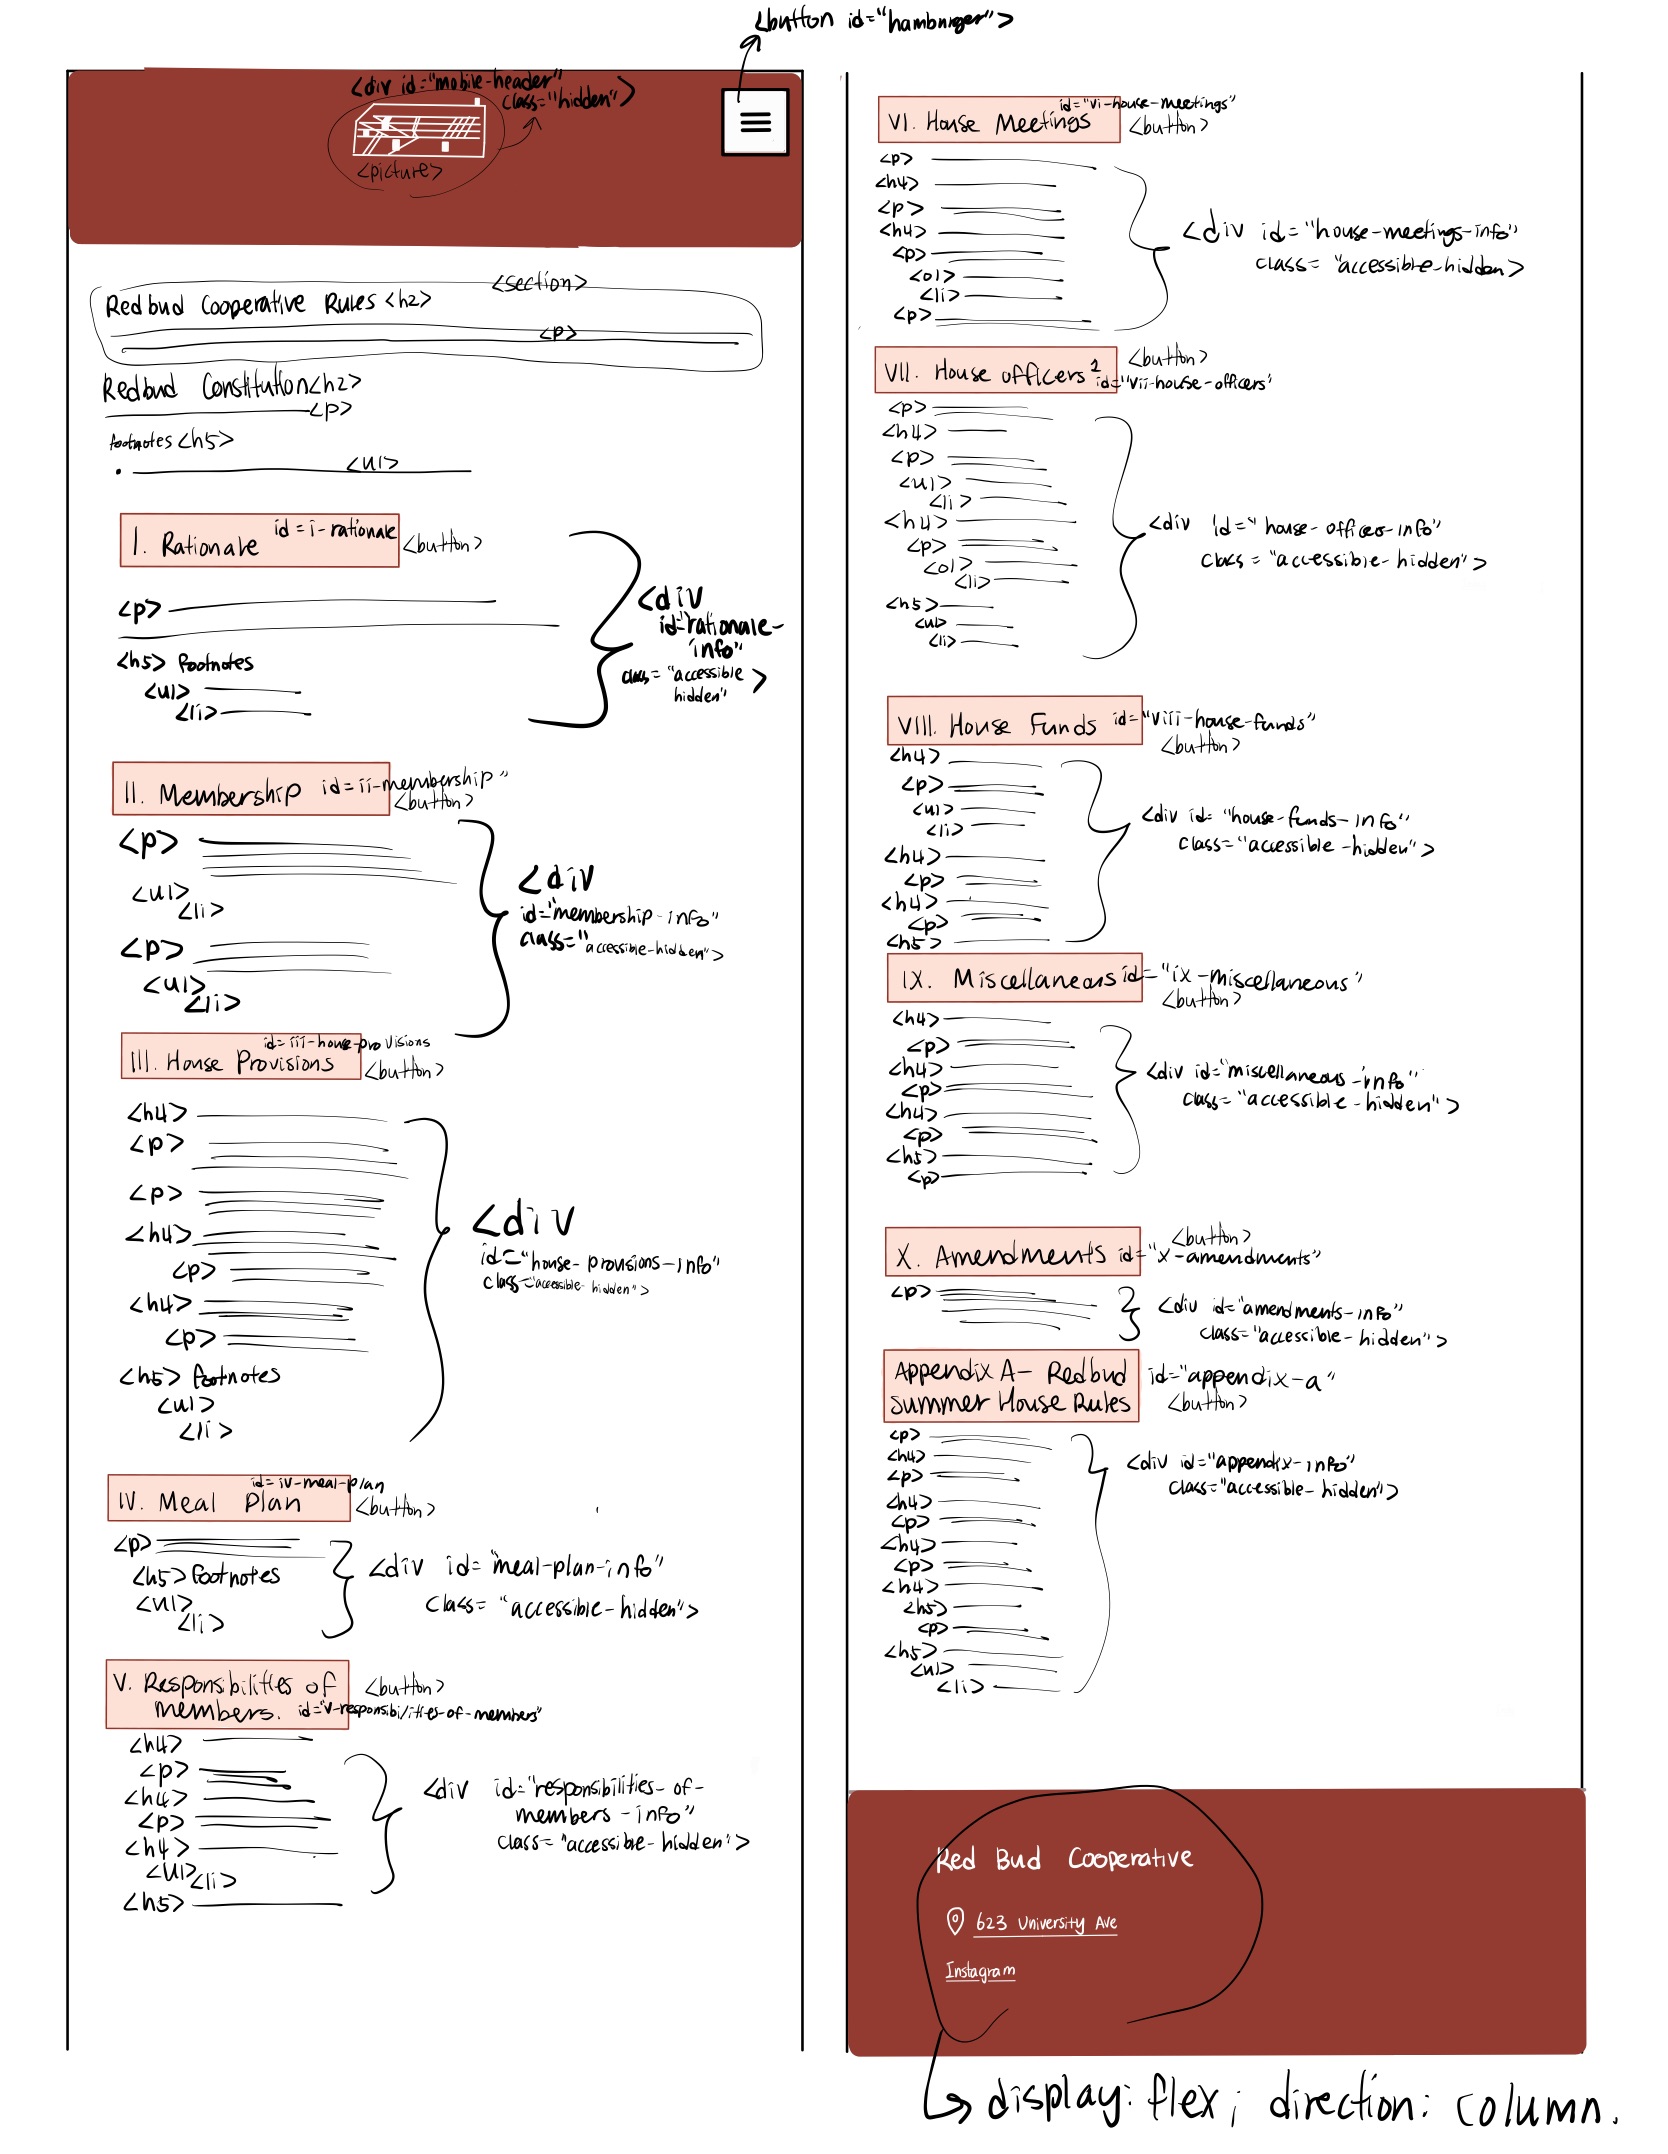 <button id="hamburger">
<div id="mobile-header"
class="hidden">
<picture>
<section>
Redbud Cooperative Rules <h2>
<p>
Redbud Constitution<h2>
<p>
footnotes <h5>
<ul>
I. Rationale id=i-rationale <button>
<p>
<h5> footnotes
<ul>
<li>
<div
id="rationale-
info"
class="accessible
hidden" >
II. Membership id=ii-membership" <button>
<p>
<ul>
<li>
<p>
<ul>
<li>
<div
id="membership-info"
class="accessible-hidden">
III. House Provisions id=iii-house-provisions <button>
<h4>
<p>
<p>
<h4>
<p>
<h4>
<p>
<h5> footnotes
<ul>
<li>
<div
id="house-provisions-info"
class="accessible-hidden">
IV. Meal Plan id=iv-meal-plan <button>
<p>
<h5> footnotes
<ul>
<li>
<div id="meal-plan-info"
class="accessible-hidden">
V. Responsibilities of <button>
members. id="v-responsibilities-of-members"
<h4>
<p>
<h4>
<p>
<h4>
<ul>
<li>
<h5>
<div id="responsibilities-of-
members-info"
class="accessible-hidden">
VI. House Meetings id="vi-house-meetings" <button>
<p>
<h4>
<p>
<h4>
<p>
<ol>
<li>
<p>
<div id="house-meetings-info"
class="accessible-hidden>
VII. House officers <button>
id="vii-house-officers"
<p>
<h4>
<p>
<ul>
<li>
<h4>
<p>
<ol>
<li>
<h5>
<ul>
<li>
<div id="house-officers-info"
class="accessible-hidden">
VIII. House Funds id="viii-house-funds"
<button>
<h4>
<p>
<ul>
<li>
<h4>
<p>
<h4>
<p>
<h5>
<div id="house-funds-info"
class="accessible-hidden">
IX. Miscellaneous id="ix-miscellaneous"
<button>
<h4>
<p>
<h4>
<p>
<h4>
<p>
<h5>
<p>
<div id="miscellaneous-info"
class="accessible-hidden">
<button>
X. Amendments id="x-amendments"
<p>
<div id="amendments-info"
class="accessible-hidden">
Appendix A- Redbud id="appendix-a"
Summer House Rules <button>
<p>
<h4>
<p>
<h4>
<p>
<h4>
<p>
<h4>
<h5>
<p>
<h5>
<ul>
<li>
<div id="appendix-info"
class="accessible-hidden">
Red Bud Cooperative
623 University Ave
Instagram
display: flex; direction: column.